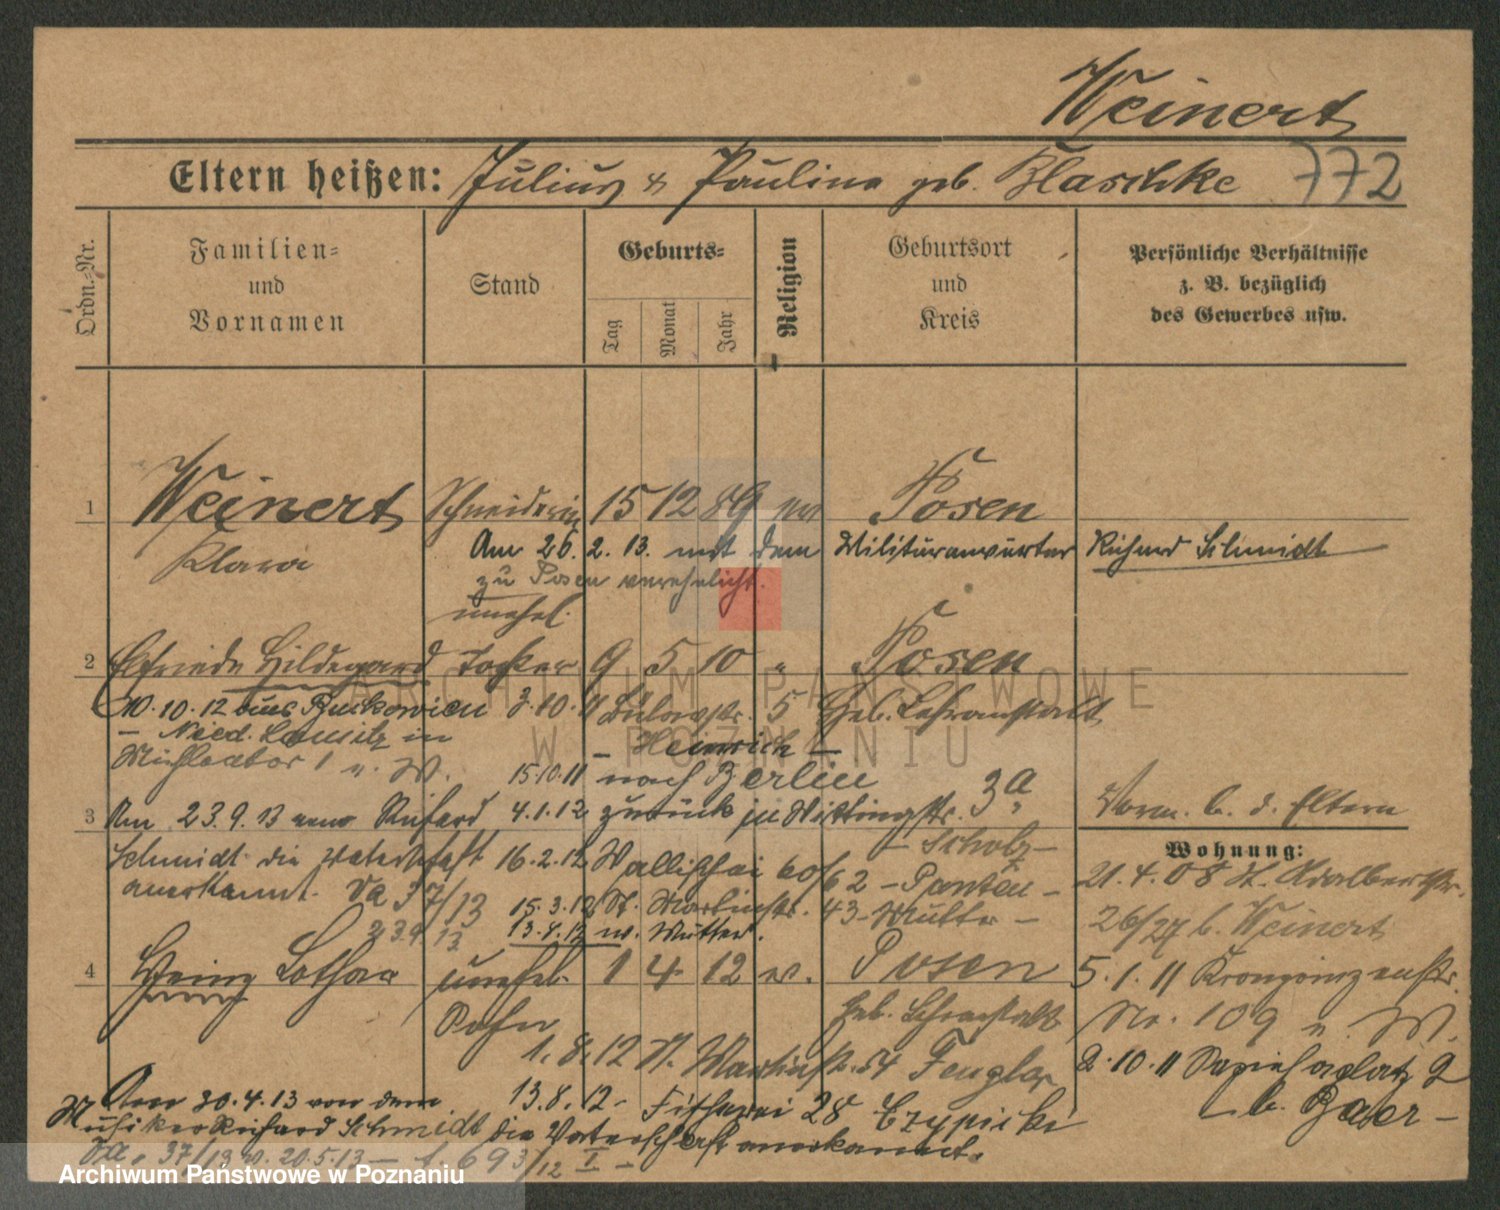 Weinert
Eltern heißen: Julius & Pauline geb. Blaschke 772
Ordn.=Nr.
Familien=
und
Vornamen
Stand
Geburts=
Tag
Monat
Jahr
Religion
Geburtsort
und
Kreis
Persönliche Verhältnisse
z. B. bezüglich
des Gewerbes usw.
1 Weinert Schneiderin 15 12 89 Posen
Klara
Am 26. 2. 13. mit dem Militäranwärter Richard Schmidt
zu Posen verehelicht.
unehel.
2 Elfriede Hildegard Tochter 9 5 10 " Posen
10.10.12 aus Buckowien 3.10.11 Bülowstr. 5 Heb. Lehranstalt
– Nied. Lausitz in
– Heinrich –
15.10.11 nach Berlin
3 Am 23.9.13 vom Richard 4.1.12 zurück in Wittingstr. 3a
– Scholz –
Schmidt die Vaterschaft 16.2.12 Wallischei 60/62 – Panten –
anerkannt. Va 37/13
15.3.12 St. Martinstr. 43 – Mutter –
13.8.12 w. Mutter.
Vorm. b. d. Eltern
Wohnung:
21.4.08 St. Adalbertstr.
26/27 b. Weinert
4 Heinz Lothar unehel. 1 4 12 Posen
Sohn
Heb. Lehranstalt
5.1.11 Kronprinzenstr.
No. 109
1.8.12 St. Martinstr. 54 Fengler
2.10.11 Sapiehaplatz 2
– b. Baer –
Am 30.4.13 von dem 13.8.12 – Fischerei 28 Czypicki
Musiker Richard Schmidt die Vaterschaft anerkannt.
Va. 37/13 v. 20.5.13 –
ARCHIWUM PAŃSTWOWE
W POZNANIU
Archiwum Państwowe w Poznaniu